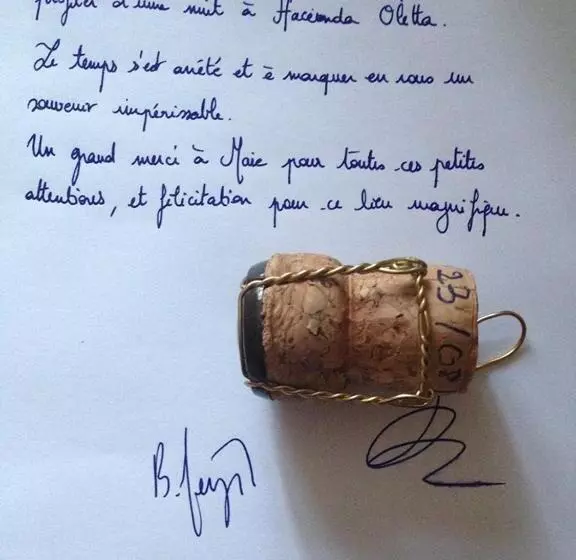 profiter d'une nuit à Hacienda Oletta.
Le temps s'est arrêté et è marquer en nous un
souvenir impérissable.
Un grand merci à Maie pour toutes ces petites
attentions, et félicitation pour ce lieu magnifique.
23/08
B.